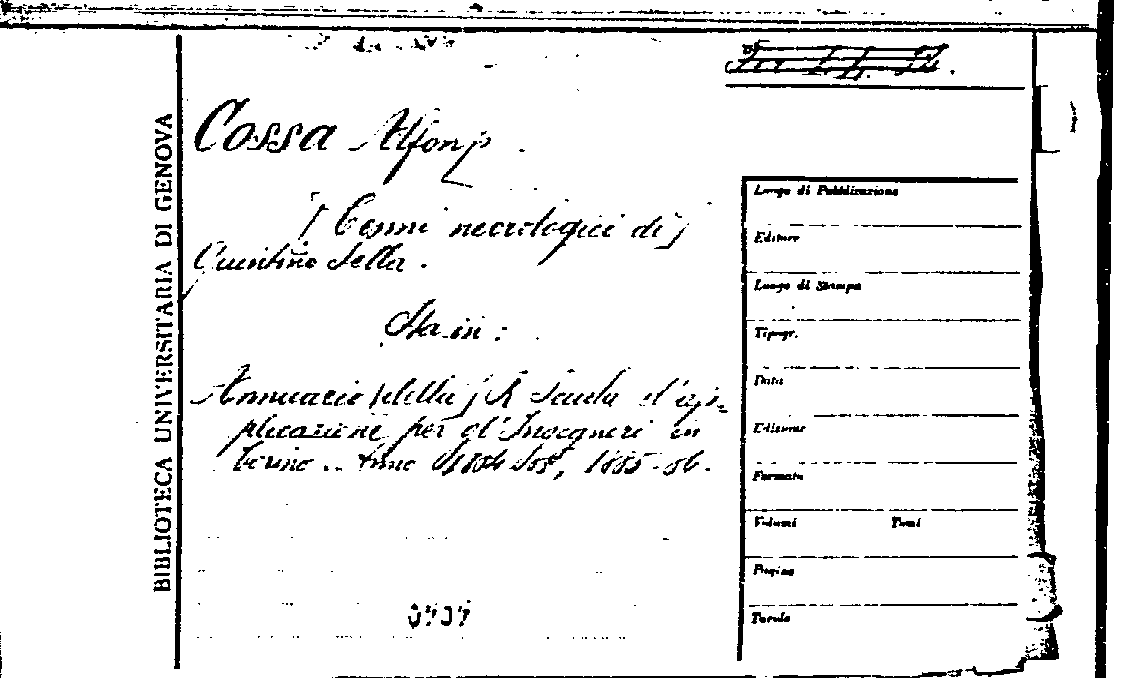 BIBLIOTECA UNIVERSITARIA DI GENOVA
Cossa Alfonso
[Cenni necrologici di]
Quintino Sella.
Sta in:
Annuario della R. Scuola d'ap=
plicazione per gl'Ingegneri in
Torino. Anno 1885-86.
Luogo di Pubblicazione
Editore
Luogo di Stampa
Tipogr.
Data
Edizione
Formato
Volumi Tomi
Pagine
Tavole